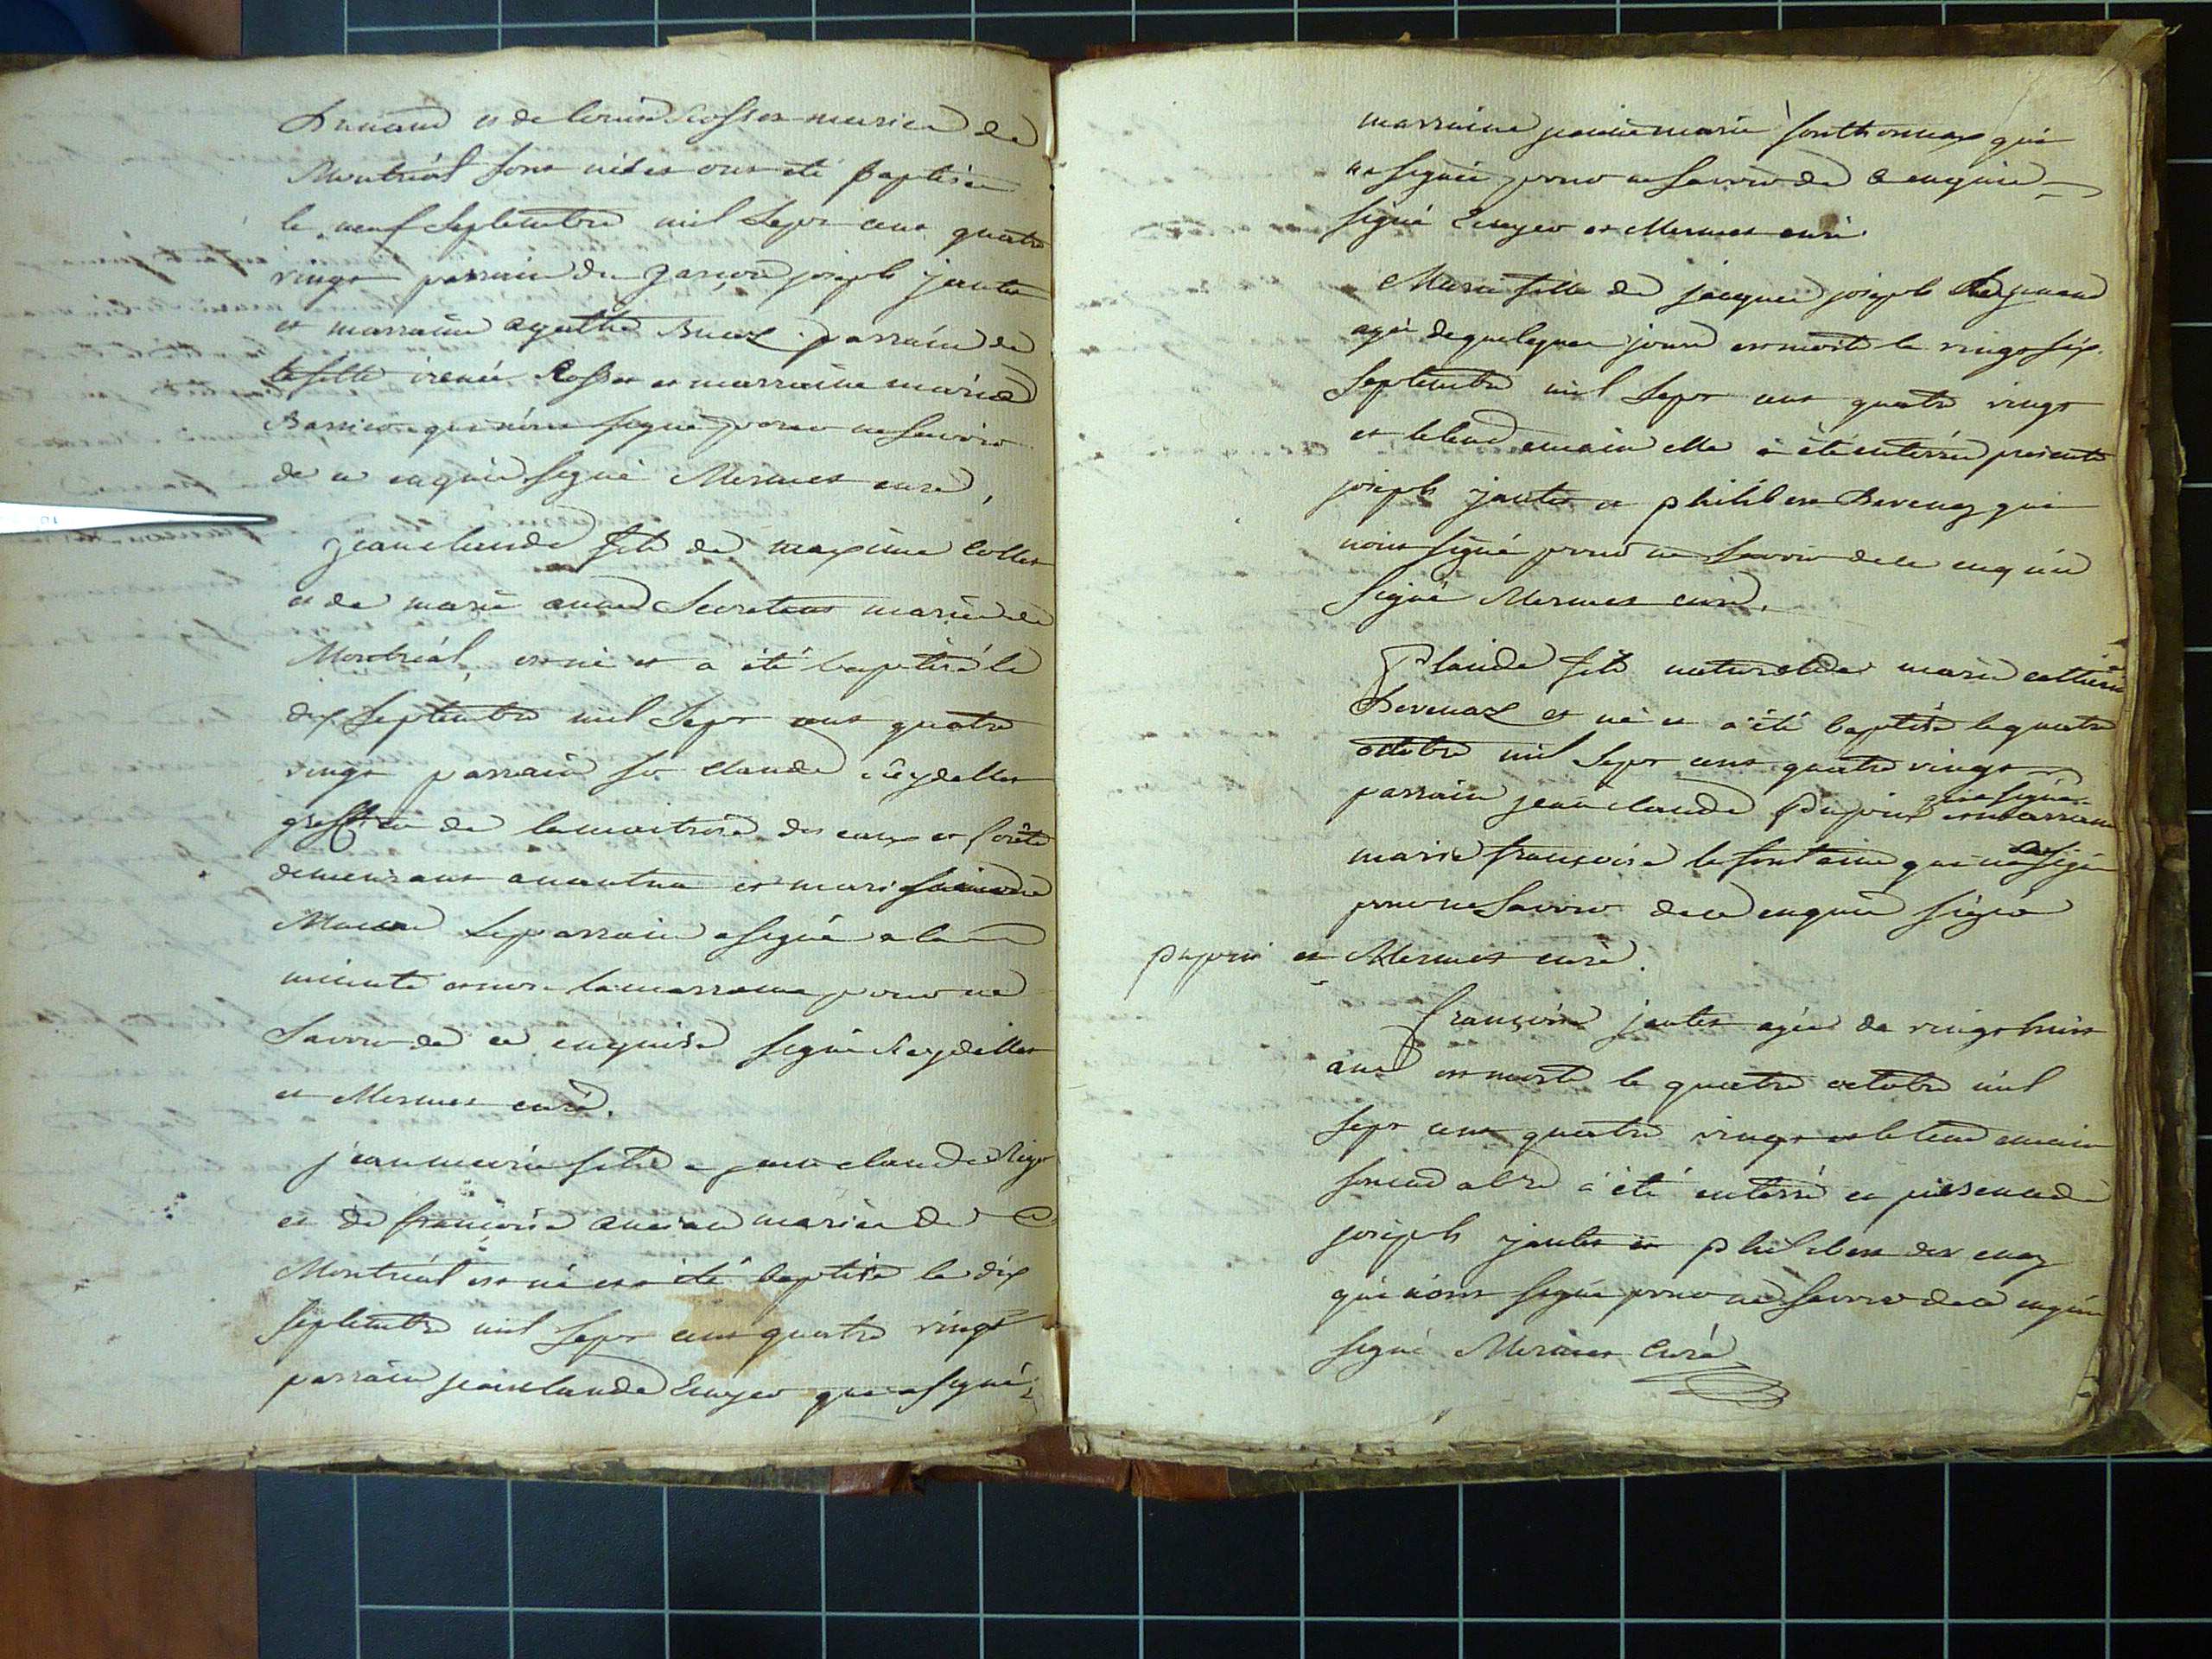 Dunand et de Louise Rosset mariés de
Montréal sont nés et ont été baptisés
le neuf septembre mil sept cent quatre
vingt parrain du garçon joseph jantet
et marraine agathe parrain de
la fille irenée Rosset et marraine marie
qui n'ont signé pour ne savoir
de ce enquis signé Mermet curé,
jean claude fils de maxime Collet
et de marie anne Secretant mariés de
Montréal, est né et a été baptisé le
dix septembre mil sept cent quatre
vingt parrain sr claude Reydellet
greffier de la maitrise des eaux et forêts
demeurant a nantua et marie
Le parrain a signé a la
minute et non la marraine pour ne
savoir de ce enquise signé Reydellet
et Mermet curé.
jean marie fils a jean claude
et de françoise mariés de
Montréal est né et a été baptisé le dix
septembre mil sept cent quatre vingt
parrain jean claude qui a signé
marraine jeanne marie qui
n'a signée pour ne savoir de ce enquise
signé et Mermet curé.
Marie fille de jacque joseph
agée de quelques jours est morte le vingt six
septembre mil sept cent quatre vingt
et le lendemain elle a été enterrée présents
joseph jantet et philibert Devenaz qui
n'ont signé pour ne savoir de ce enquis
signé Mermet curé.
Claude fils naturel de marie catherine
Devenaz et né et a été baptisé le quatre
octobre mil sept cent quatre vingt
parrain jean claude Dupuis qui a signé et marraine
marie françoise la fontaine qui n'a signé
pour ne savoir de ce enquise signé
Dupuis et Mermet curé.
françoise jantet agée de vingt huit
ans est morte le quatre octobre mil
sept cent quatre vingt et le lendemain
son cadavre a été enterré en présence de
joseph jantet et philibert devenaz
qui n'ont signé pour ne savoir de ce enquis
signé Mermet Curé